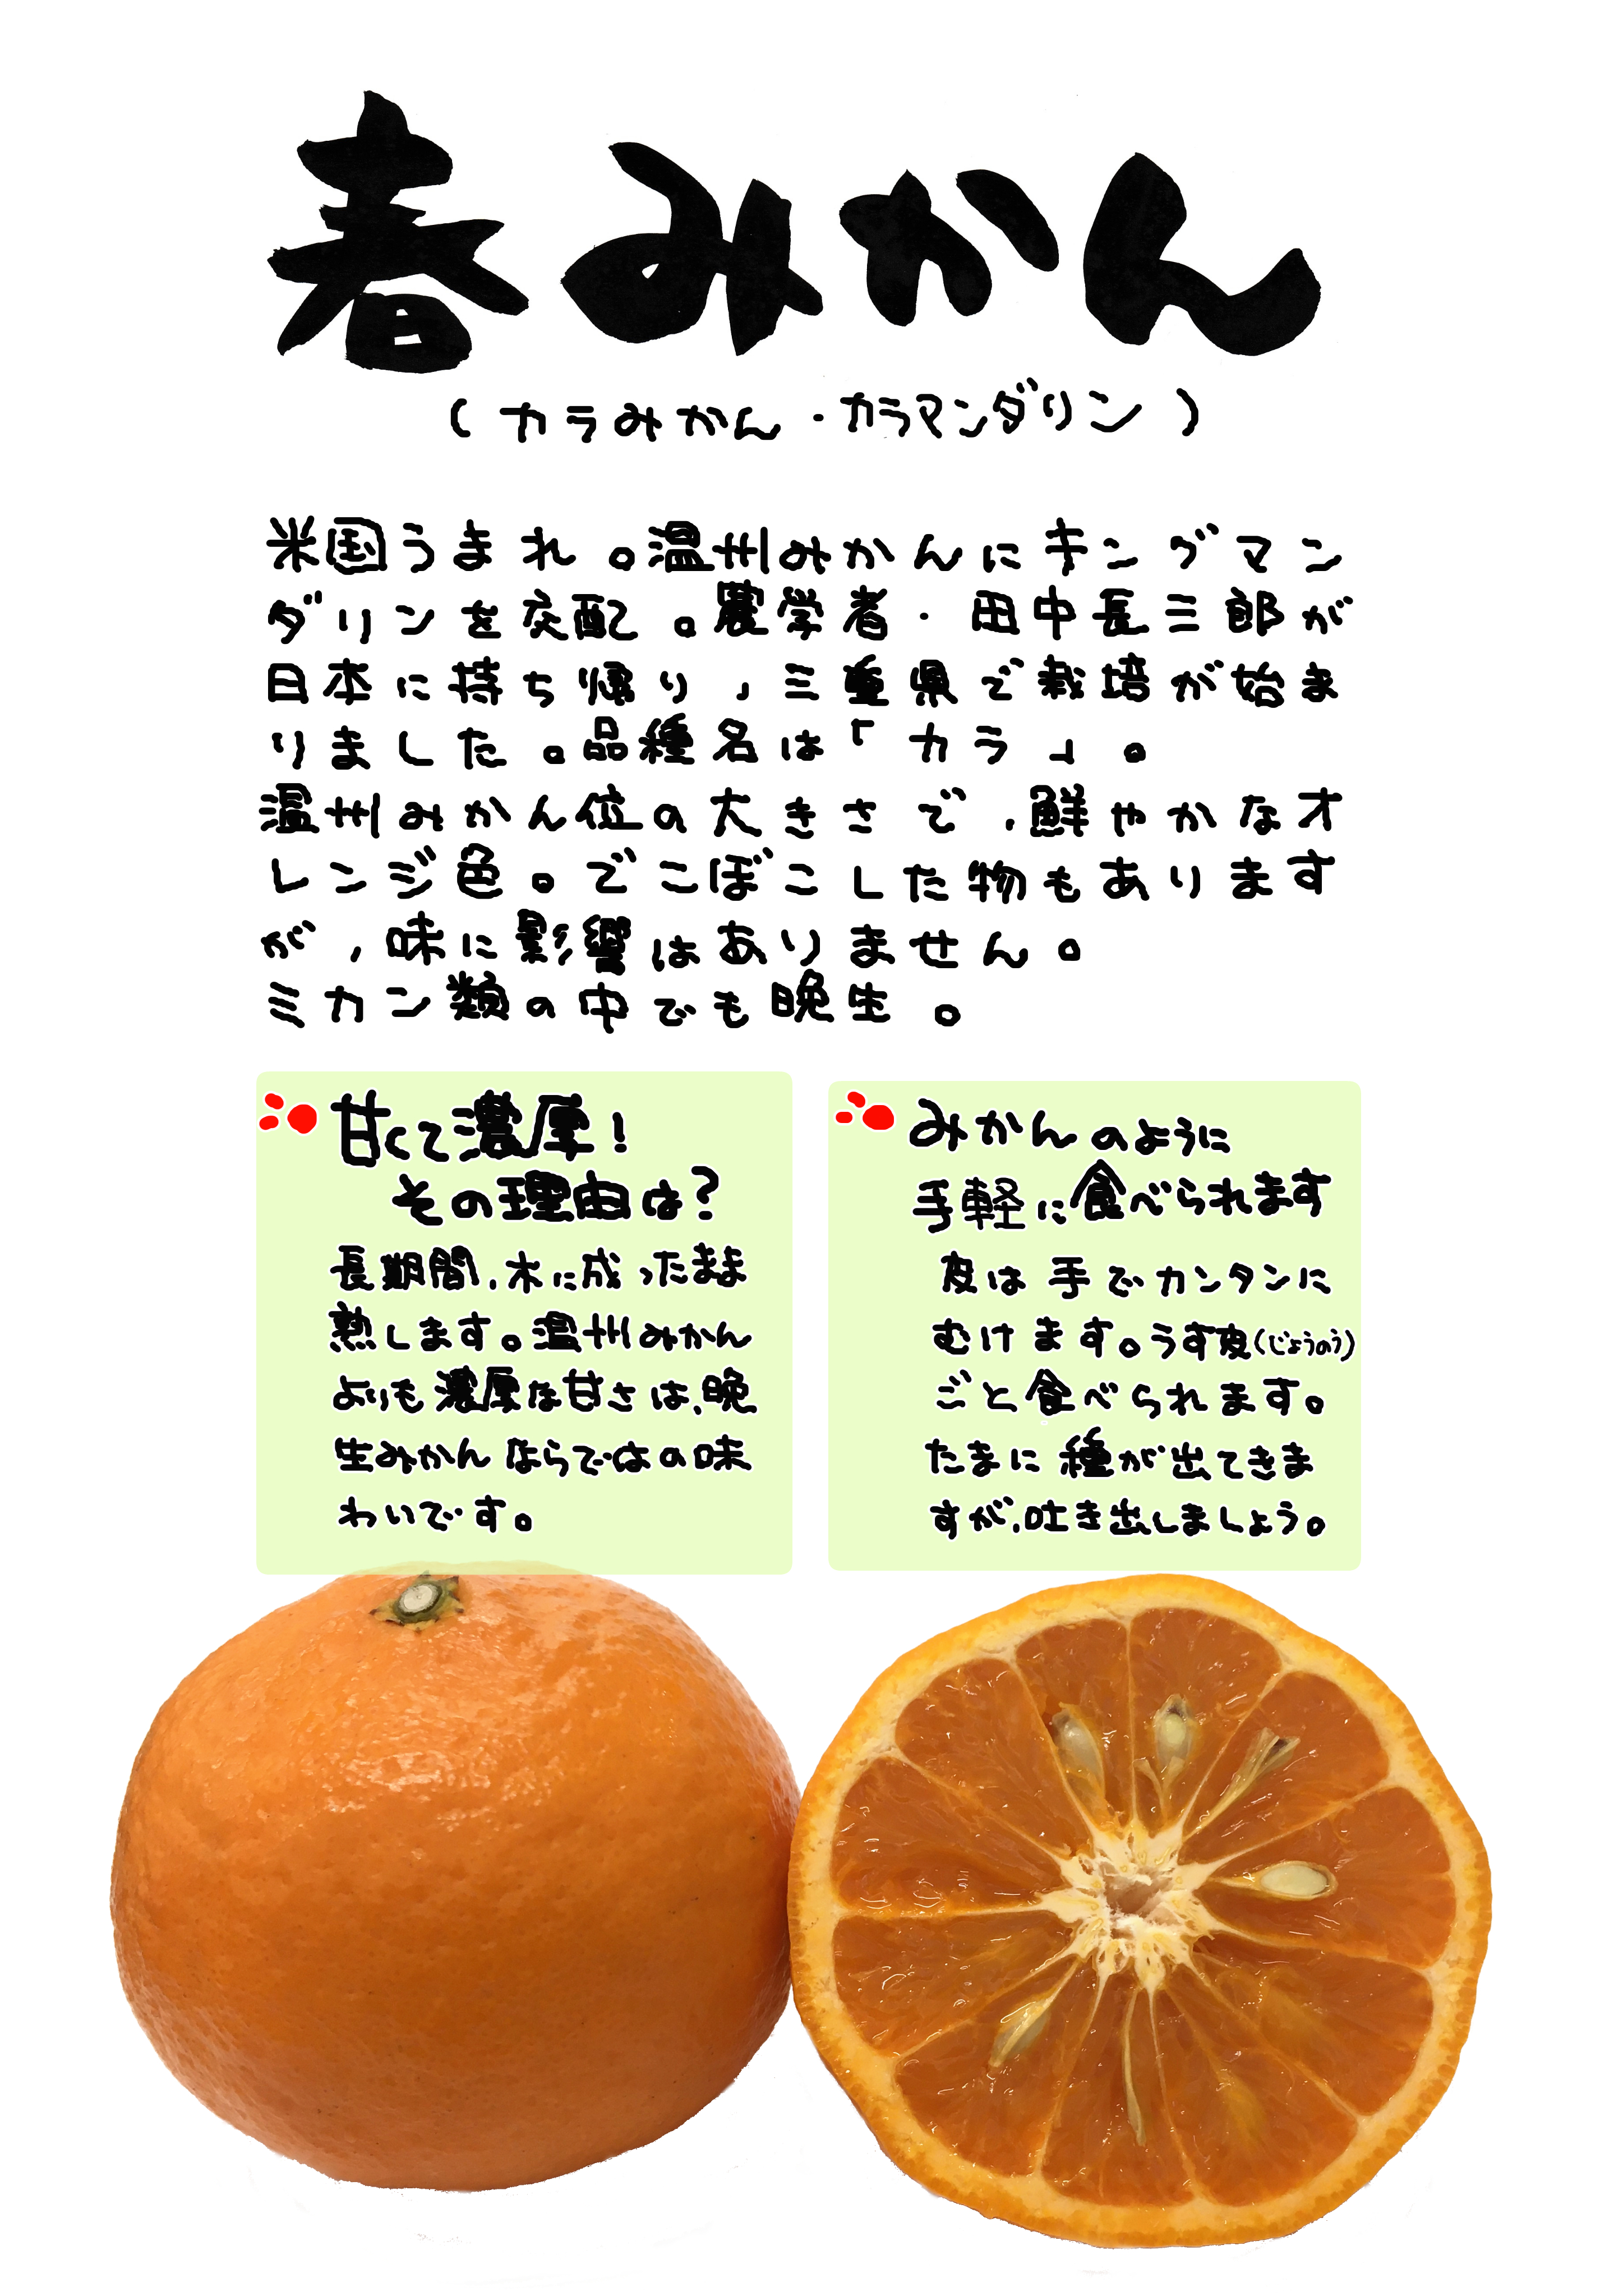 春みかん
(カラみかん・カラマンダリン)
米国うまれ。温州みかんにキングマン
ダリンを交配。農学者・田中長三郎が
日本に持ち帰り、三重県で栽培が始ま
りました。品種名は「カラ」。
温州みかん位の大きさで、鮮やかなオ
レンジ色。でこぼこした物もあります
が、味に影響はありません。
ミカン類の中でも晩生。
甘くて濃厚!
その理由は?
長期間、木に成ったまま
熟します。温州みかん
よりも濃厚な甘さは、晩
生みかんならではの味
わいです。
みかんのように
手軽に食べられます
皮は手でカンタンに
むけます。うす皮(じょうのう)
ごと食べられます。
たまに種が出てきま
すが、吐き出しましょう。